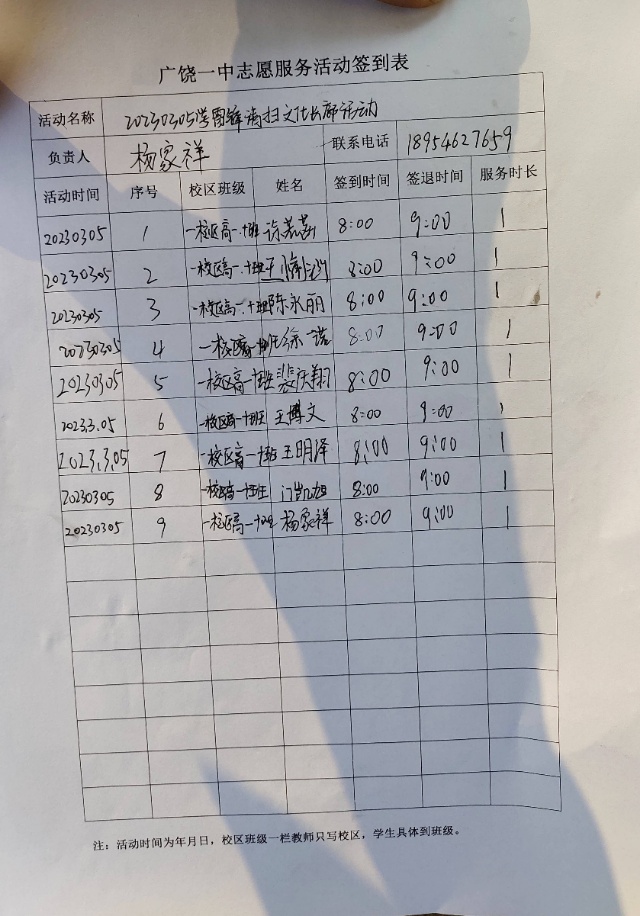 广饶一中志愿服务活动签到表
活动名称 20230305学雷锋清扫文化长廊活动
负责人 杨家祥 联系电话 18954627659
活动时间 序号 校区班级 姓名 签到时间 签退时间 服务时长
20230305 1 一校区高一.十班 8:00 9:00 1
20230305 2 一校区高一.十班 王 8:00 9:00 1
20230305 3 一校区高一.十班 陈永丽 8:00 9:00 1
20230305 4 一校区高一十班 徐一诺 8:00 9:00 1
20230305 5 一校区高一十班 裴庆翔 8:00 9:00 1
2023.3.05 6 一校区高一十班 王博文 8:00 9:00 1
2023.3.05 7 一校区高一十班 王明泽 8:00 9:00 1
20230305 8 一校区高一十班 8:00 9:00 1
20230305 9 一校区高一十班 杨家祥 8:00 9:00 1
注：活动时间为年月日，校区班级一栏教师只写校区，学生具体到班级。